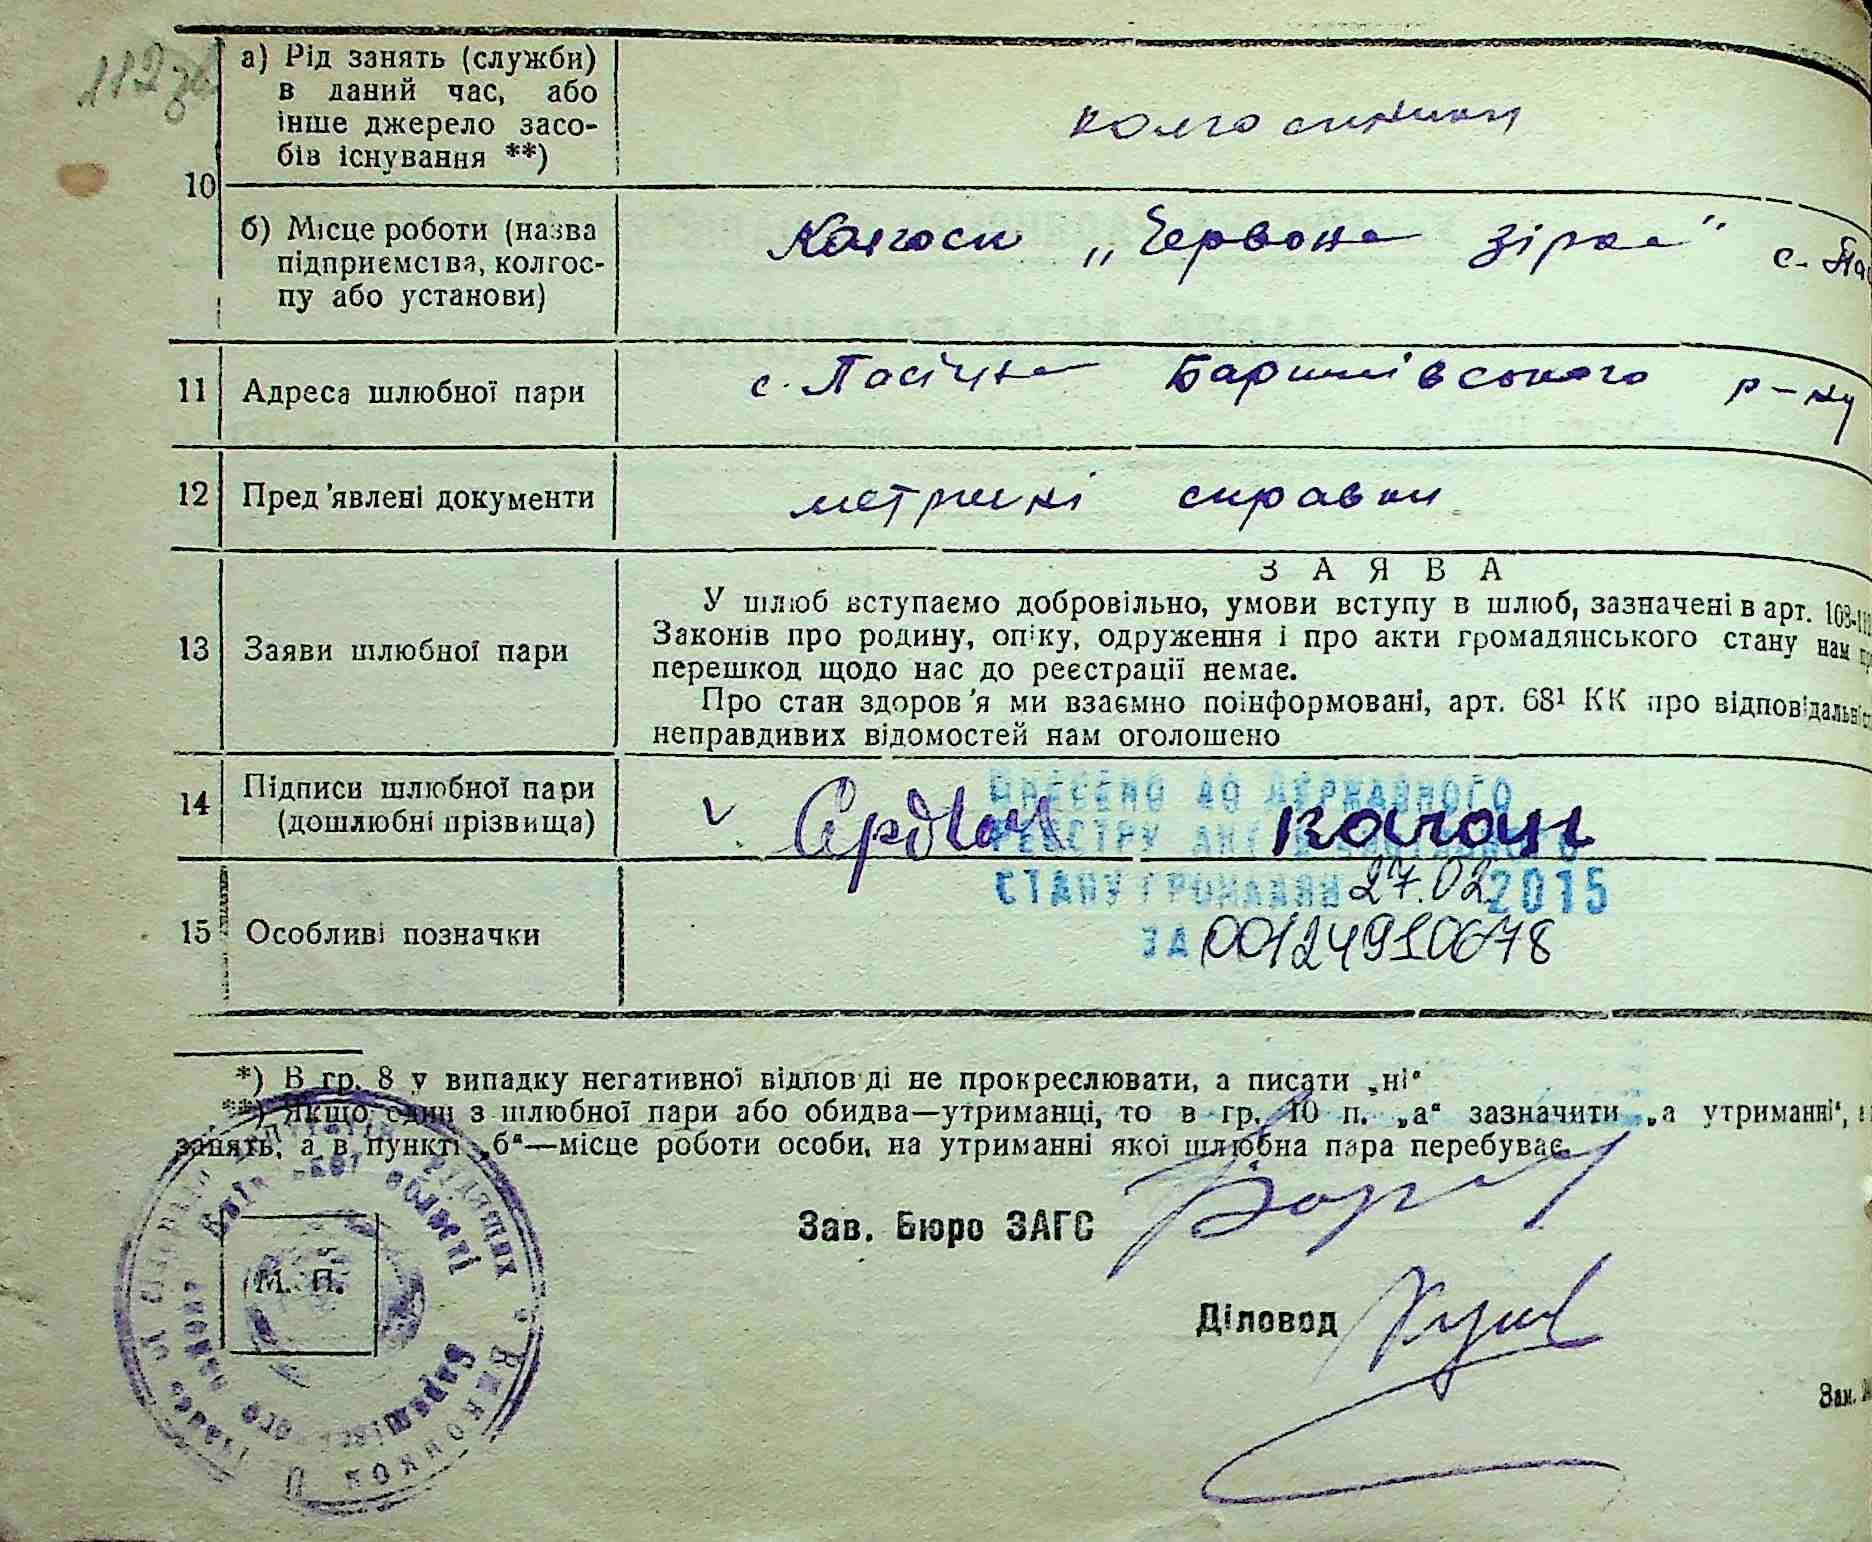 112 зв
а) Рід занять (служби)
в даний час, або
інше джерело засо-
бів існування **)
колгоспники
10
б) Місце роботи (назва
підприємства, колгос-
пу або установи)
Колгосп „Червона зірка" с. Па
11 Адреса шлюбної пари с. Пасічна Баришівського р-ну
12 Пред'явлені документи метричні справки
З А Я В А
13 Заяви шлюбної пари
У шлюб вступаємо добровільно, умови вступу в шлюб, зазначені в арт. 108-
Законів про родину, опіку, одруження і про акти громадянського стану нам
перешкод щодо нас до реєстрації немає.
Про стан здоров'я ми взаємно поінформовані, арт. 68¹ КК про відповідальність
неправдивих відомостей нам оголошено
14 Підписи шлюбної пари
(дошлюбні прізвища)
Сердюк Качан
ВНЕСЕНО ДО ДЕРЖАВНОГО
РЕЄСТРУ АКТІВ ЦИВІЛЬНОГО
СТАНУ ГРОМАДЯН 27.02.2015
ЗА 00124910678
15 Особливі позначки
*) В гр. 8 у випадку негативної відповіді не прокреслювати, а писати „ні"
**) Якщо один з шлюбної пари або обидва—утриманці, то в гр. 10 п. „а" зазначити „а утриманні",
занять, а в пункті „б"—місце роботи особи, на утриманні якої шлюбна пара перебуває.
Зав. Бюро ЗАГС
М. П.
Діловод
Зам.